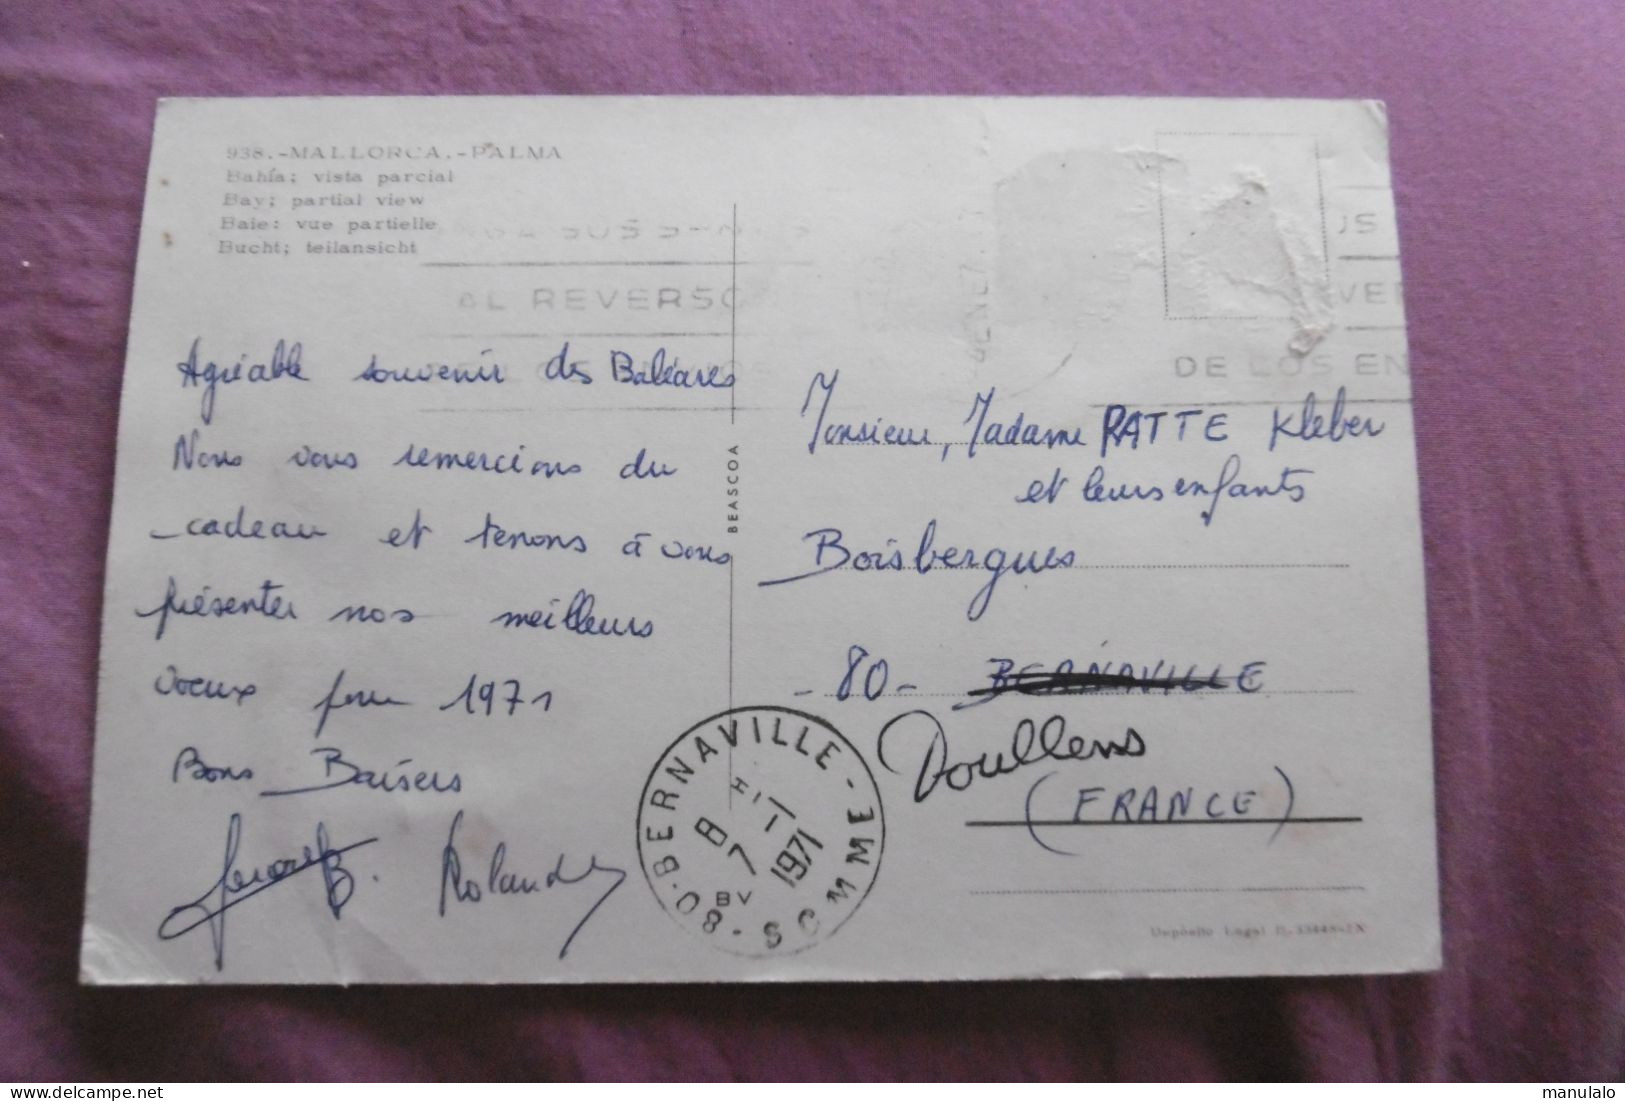 938.-MALLORCA.-PALMA
Bahía; vista parcial
Bay; partial view
Baie: vue partielle
Bucht; teilansicht
AL REVERSO
DE LOS EN
Agréable souvenir des Baléares
Nous vous remercions du
cadeau et tenons à vous
présenter nos meilleurs
voeux pour 1971
Bons Baisers
Rolande
BEASCOA
Monsieur, Madame RATTE Kleber
et leurs enfants
Boisbergues
- 80 - BERNAVILLE
Doullens
(FRANCE)
80 - BERNAVILLE - SOMME
8 H
7 -1
1971
BV
Depósito Legal B. 33448-IX
manulalo